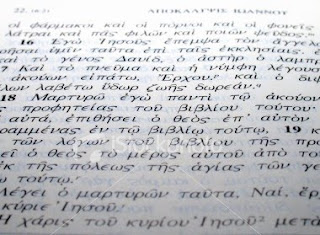 22, 16-21 ΑΠΟΚΑΛΥΨΙΣ ΙΩΑΝΝΟΥ
οἱ φάρμακοι καὶ οἱ πόρνοι καὶ οἱ φονεῖς
λάτραι καὶ πᾶς φιλῶν καὶ ποιῶν ψεῦδος.
16 Ἐγὼ Ἰησοῦς ἔπεμψα τὸν ἄγγελο
ρῆσαι ὑμῖν ταῦτα ἐπὶ ταῖς ἐκκλησίαις.
καὶ τὸ γένος Δαυίδ, ὁ ἀστὴρ ὁ λαμπρ
Καὶ τὸ πνεῦμα καὶ ἡ νύμφη λέγουσ
ἀκούων εἰπάτω, Ἔρχου. καὶ ὁ διψ
λων λαβέτω ὕδωρ ζωῆς δωρεάν.
18 Μαρτυρῶ ἐγὼ παντὶ τῷ ἀκούον
προφητείας τοῦ βιβλίου τούτου·
αὐτά, ἐπιθήσει ὁ θεὸς ἐπ' αὐτὸν
ραμμένας ἐν τῷ βιβλίῳ τούτῳ, 19
τῶν λόγων τοῦ βιβλίου τῆς προ
ὁ θεὸς τὸ μέρος αὐτοῦ ἀπὸ το
ἐκ τῆς πόλεως τῆς ἁγίας τῶν γε
τούτῳ.
Λέγει ὁ μαρτυρῶν ταῦτα, Ναί, ἔρ
κύριε Ἰησοῦ.
Ἡ χάρις τοῦ κυρίου Ἰησοῦ μετὰ